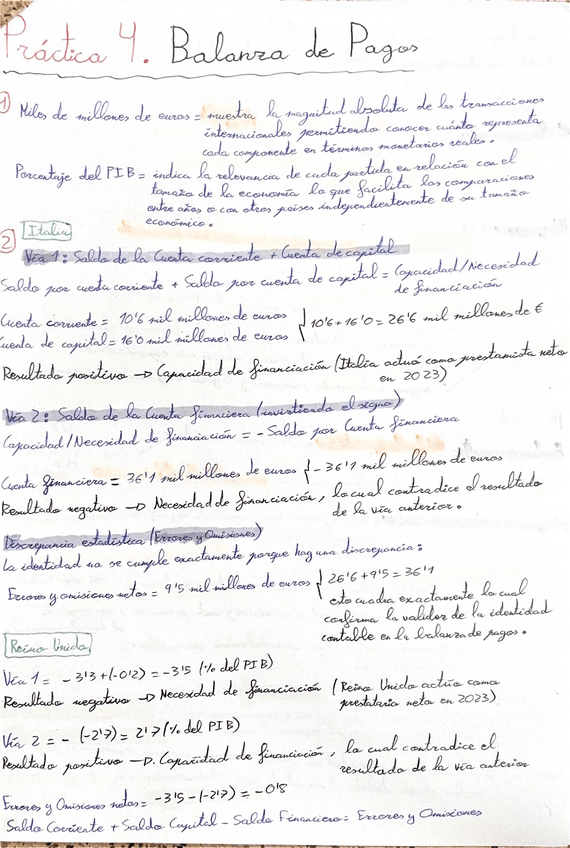 Práctica 4. Balanza de Pagos
1) Miles de millones de euros = muestra la magnitud absoluta de las transacciones
internacionales permitiendo conocer cuánto representa
cada componente en términos monetarios reales.
Porcentaje del PIB = indica la relevancia de cada partida en relación con el
tamaño de la economía lo que facilita las comparaciones
entre años o con otros países independientemente de su tamaño
económico.
2) Italia
Vía 1: Saldo de la Cuenta corriente + Cuenta de capital
Saldo por cuenta corriente + Saldo por cuenta de capital = Capacidad/Necesidad
de financiación
Cuenta corriente = 10'6 mil millones de euros
Cuenta de capital = 16'0 mil millones de euros
10'6 + 16'0 = 26'6 mil millones de €
Resultado positivo → Capacidad de financiación (Italia actuó como prestamista neto
en 2023)
Vía 2: Saldo de la Cuenta financiera (invirtiendo el signo)
Capacidad/Necesidad de financiación = - Saldo por Cuenta financiera
Cuenta financiera = 36'1 mil millones de euros { -36'1 mil millones de euros
Resultado negativo → Necesidad de financiación, lo cual contradice el resultado
de la vía anterior.
Discrepancia estadística (Errores y Omisiones)
La identidad no se cumple exactamente porque hay una discrepancia:
Errores y omisiones netos = 9'5 mil millones de euros { 26'6 + 9'5 = 36'1
esto cuadra exactamente lo cual
confirma la validez de la identidad
contable en la balanza de pagos.
Reino Unido
Vía 1 = -3'3 + (-0'2) = -3'5 (% del PIB)
Resultado negativo → Necesidad de financiación (Reino Unido actúa como
prestatario neto en 2023)
Vía 2 = -(-2'7) = 2'7 (% del PIB)
Resultado positivo → Capacidad de financiación, lo cual contradice el
resultado de la vía anterior
Errores y Omisiones netos = -3'5 - (-2'7) = -0'8
Saldo Corriente + Saldo Capital - Saldo Financiero = Errores y Omisiones